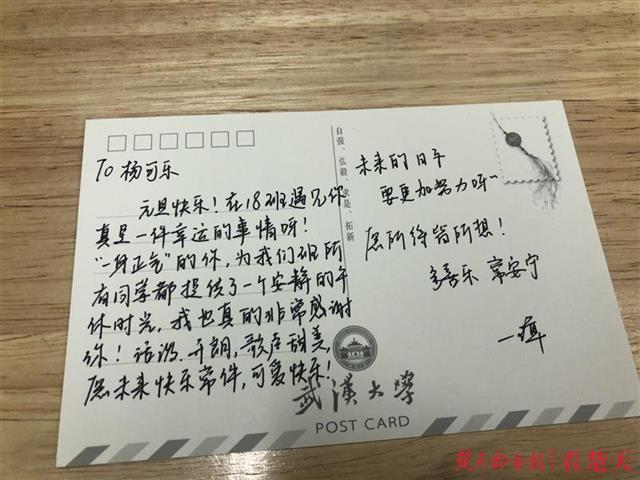 To 杨可乐
元旦快乐！在18班遇见你
真是一件幸运的事情呀！
“一身正气”的你，为我们班所
有同学都提供了一个安静的午
休时光，我也真的非常感谢
你！活泼、开朗，歌声甜美，
愿未来快乐常伴，可爱快乐！
自强、弘毅、求是、拓新
未来的日子
要更加努力呀~
愿所待皆所想！
多喜乐 常安宁
武漢大學
POST CARD